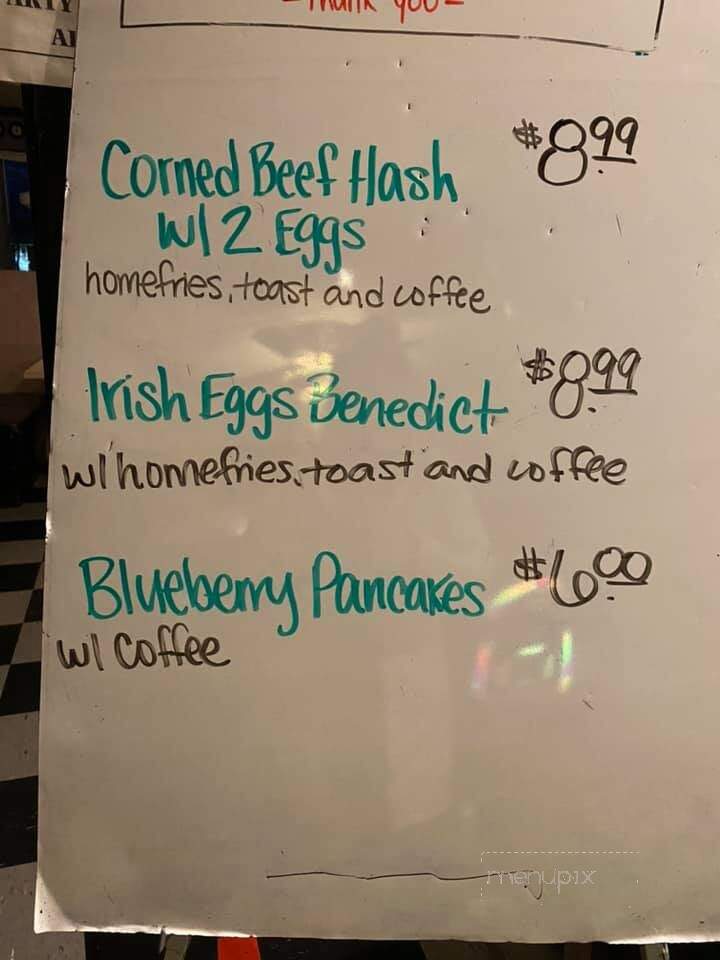 -Thank you-
Corned Beef Hash $8.99
w/ 2 Eggs
homefries, toast and coffee
Irish Eggs Benedict $8.99
w/ homefries, toast and coffee
Blueberry Pancakes $6.00
w/ Coffee
menupix